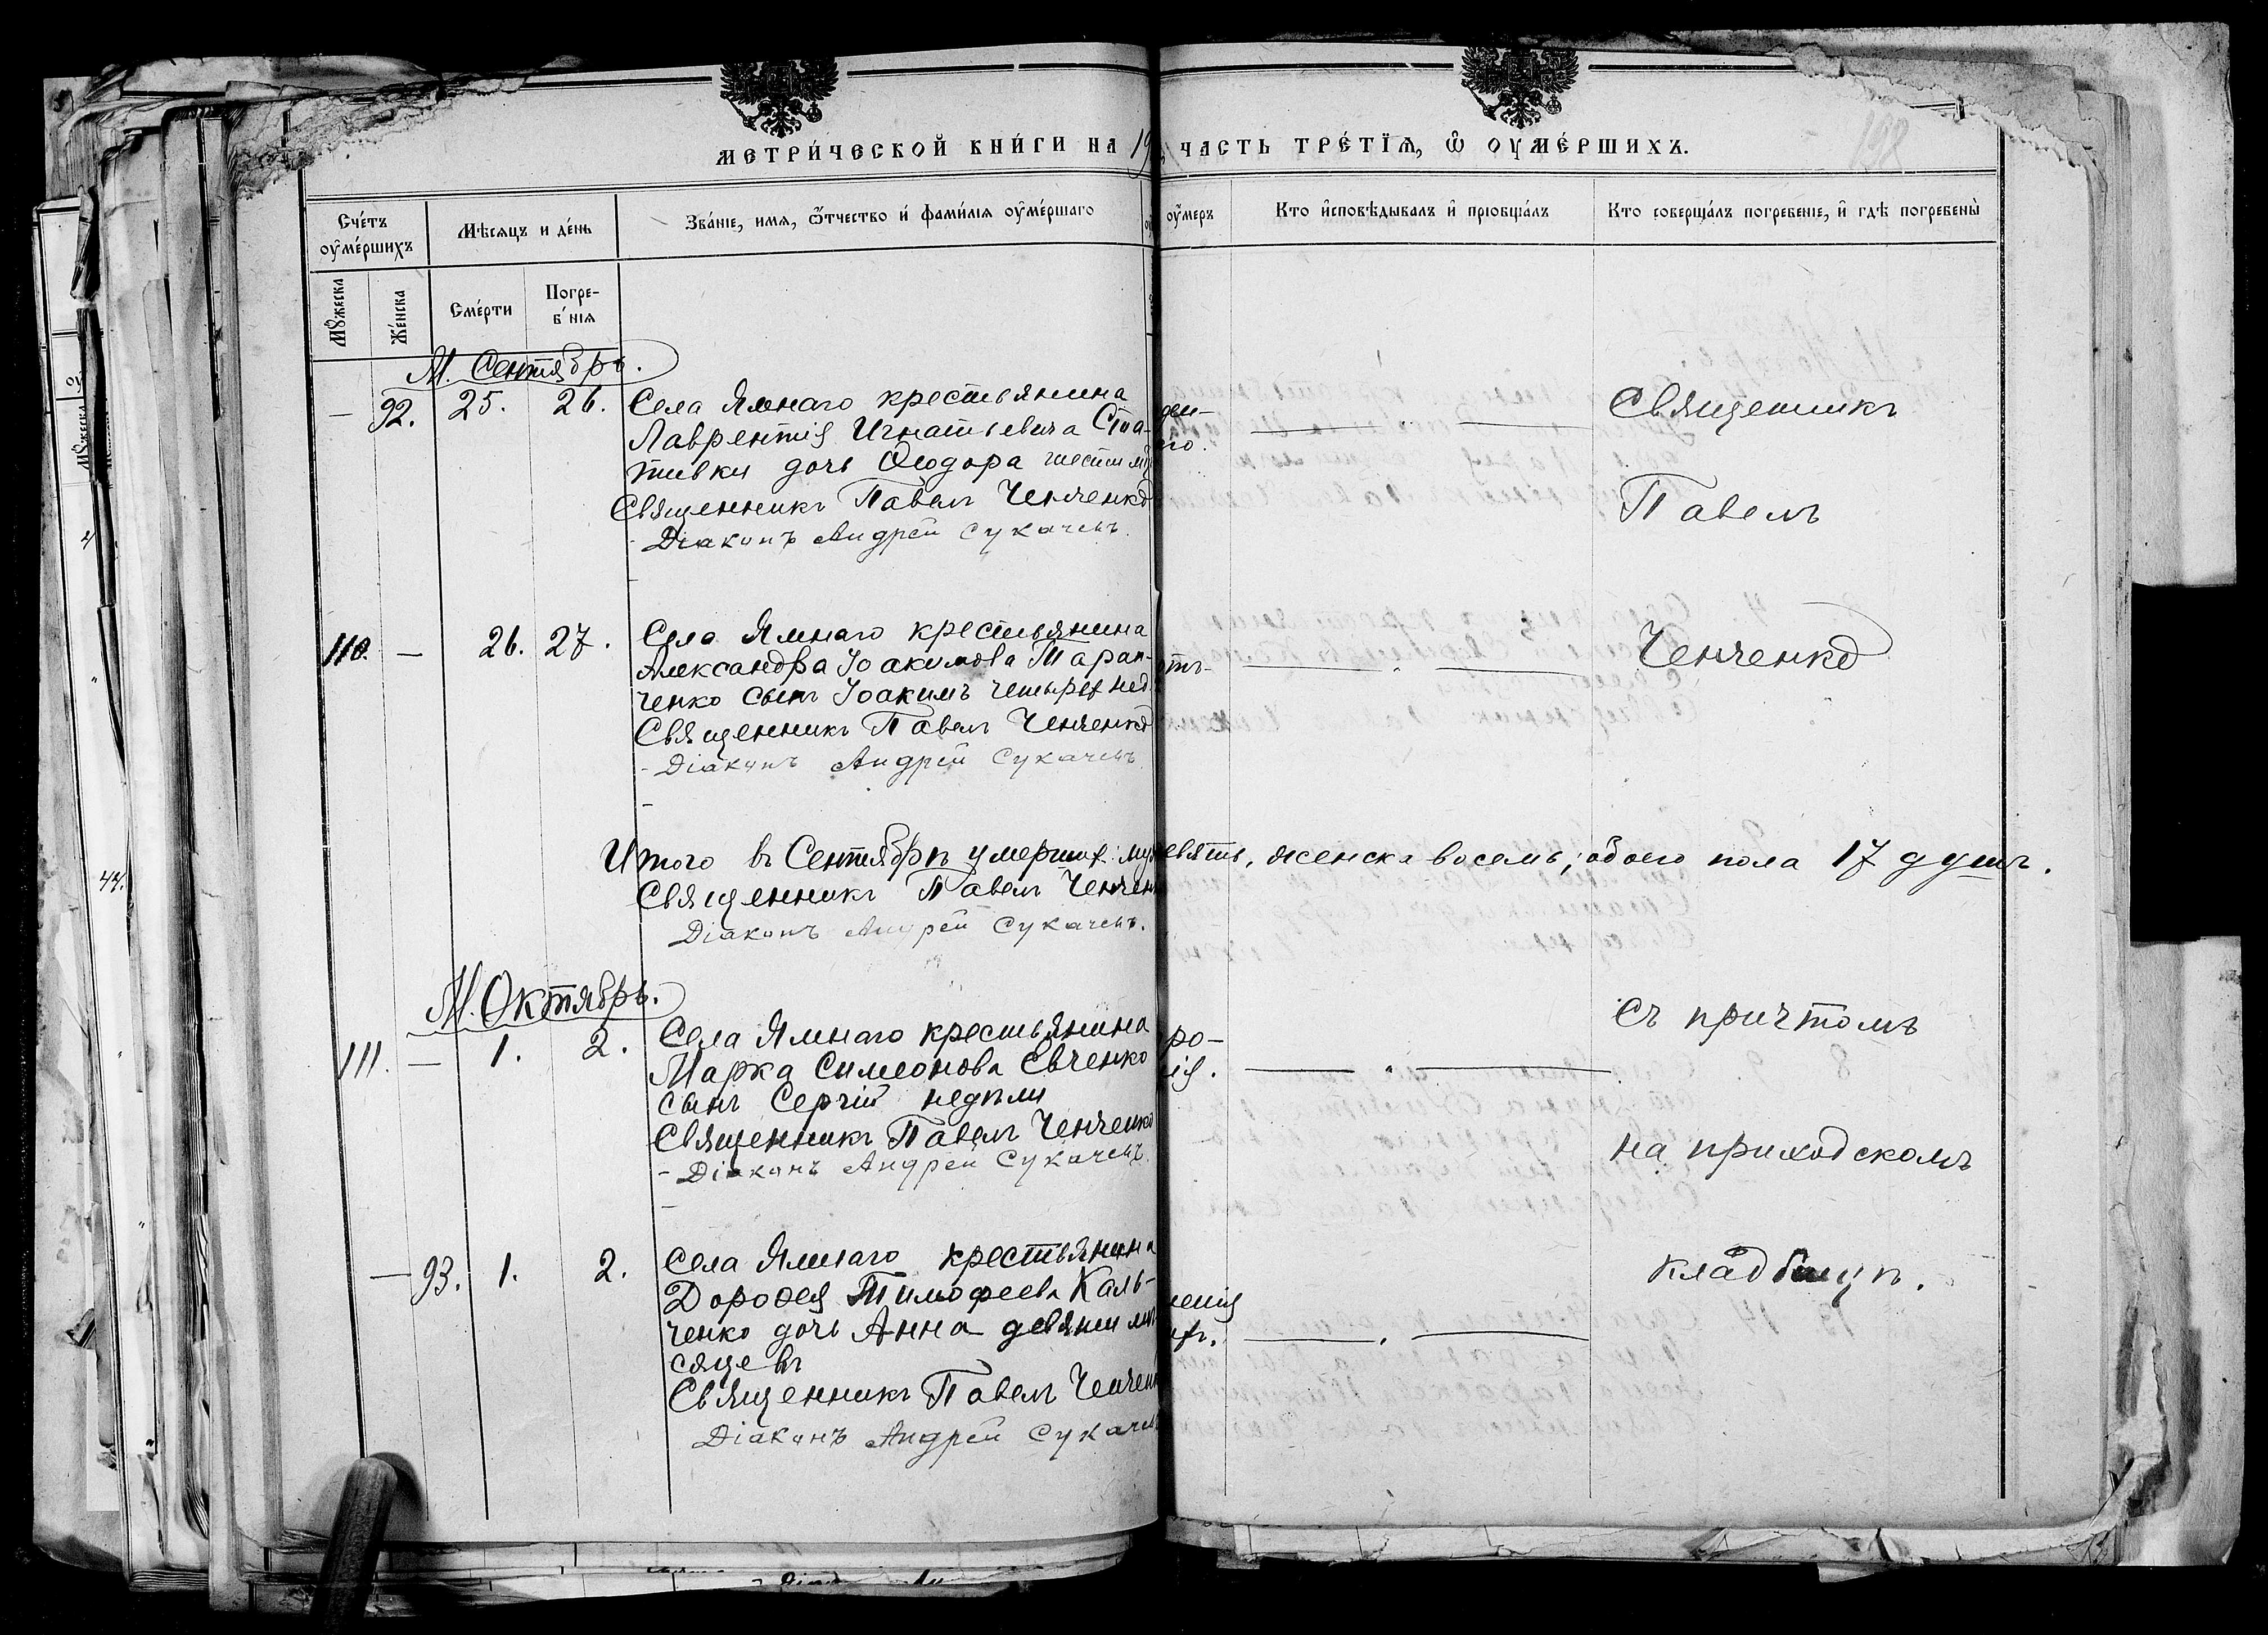 МЕТРИ́ЧЕСКОЙ КНИ́ГИ НА 19 ЧАСТЬ ТРЕ́ТЇѦ, Ѿ ОУМЕ́РШИХЪ.
198
Сче́тъ оуме́ршихъ
Мѣсяцъ и де́нь
Зва́нїе, имя, ѿтчество и́ фами́лїя оуме́ршаго
оуме́ръ
Кто и́сповѣдывалъ и́ прїобща́лъ
Кто соверша́лъ погребенїе, и́ гдѣ погребены̀
Мꙋ́жеска
Же́нска
Сме́рти
Погре-
б́нїя
М. Сентябрь.
— 92. 25. 26. Села Ямнаго крестьянина
Лаврентія Игнатьевича Ста-
тивки дочь Ѳеодора шести мѣ
Священникъ Павелъ Ченченко
Діаконъ Андрей Сукачевъ.
Священникъ
Павелъ
110. — 26. 27. Села Ямнаго крестьянина
Александра Іоакимова Таран-
ченко сынъ Іоакимъ четырех нед.
Священникъ Павелъ Ченченко
Діаконъ Андрей Сукачевъ
Ченченко
Итого въ Сентябрѣ умерших: му евять, женска восемь; обоего пола 17 душъ.
Священникъ Павелъ Ченчен
Діаконъ Андрей Сукачевъ.
М. Октябрь.
111. — 1. 2. Села Ямнаго крестьянина
Марка Симеонова Евченко
сынъ Сергій недѣли
Священникъ Павелъ Ченченко
Діаконъ Андрей Сукачевъ.
съ причтомъ
на приходскомъ
— 93. 1. 2. Села Ямнаго крестьянина
Дороѳея Тимофеева Каль-
ченко дочь Анна девяти мѣ
сяцевъ
Священникъ Павелъ Ченчен
Діаконъ Андрей Сукачев
кладбищѣ.